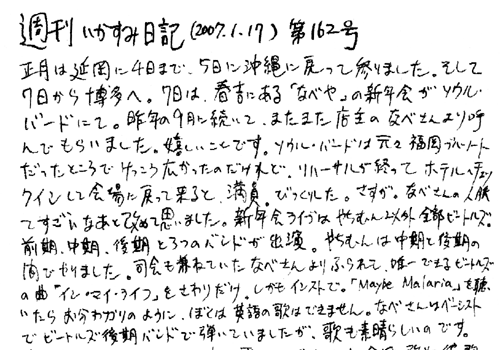 週刊いかすみ日記(2007.1.17) 第162号
正月は延岡に4日まで、5日に沖縄に戻って参りました。そして
7日から博多へ。7日は、春吉にある「なべや」の新年会がソウル・
バードにて。昨年の9月に続いて、またまた店主のなべさんより呼
んでもらいました。嬉しいことです。ソウル・バードは元々福岡ブルーノート
だったところでけっこう広かったのだけれど、リハーサルが終ってホテルへチェッ
クインして会場に戻って来ると、満員。びっくりした。さすが。なべさんの人脈
てすごいなあと改めて思いました。新年会ライブはやちむん以外全部ビートルズ。
前期、中期、後期と3つのバンドが出演。やちむんは中期と後期の
間でやりました。司会も兼ねていたなべさんよりふられて、唯一できるビートルズ
の曲「イン・マイ・ライフ」をさわりだけ。しかもインストで。「Maybe Malaria」を聴
いたらお分わかりのように、ぼくは英語の歌はできません。なべさんはベーシスト
でビートルズ後期バンドで弾いていましたが、歌も素晴らしいのです。